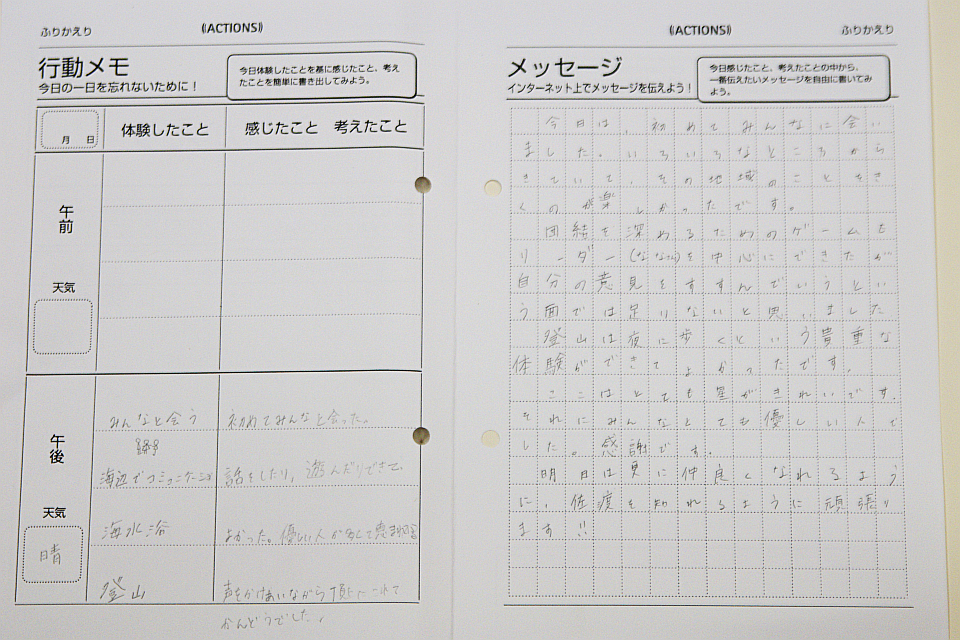 ふりかえり
((ACTIONS))
行動メモ
今日の一日を忘れないために！
今日体験したことを基に感じたこと、考え
たことを簡単に書き出してみよう。
月 日
体験したこと
感じたこと 考えたこと
午前
天気
午後
天気
晴
みんなと会う
初めてみんなと会った。
海辺でコミュニケーション
話をしたり、遊んだりできて
海水浴
よかった。優しい人が多くて
登山
声をかけあいながら頂上へ
かんどうでした。
((ACTIONS))
ふりかえり
メッセージ
インターネット上でメッセージを伝えよう！
今日感じたこと、考えたことの中から、
一番伝えたいメッセージを自由に書いてみ
よう。
今日は、初めてみんなに会い
ました。いろいろなところから
きていて、その地域のことをき
くのが楽しかったです。
団結を深めるためのゲームも
リーダー を中心にできたが
自分の意見をすすんでいうとい
う面では足りないと思いました
登山は夜に歩くという貴重な
体験ができてよかったです。
ここはとても星がきれいです。
それにみんなとても優しい人で
した。感謝です。
明日は更に仲良くなれるよう
に、佐渡を知れるように頑張り
ます!!